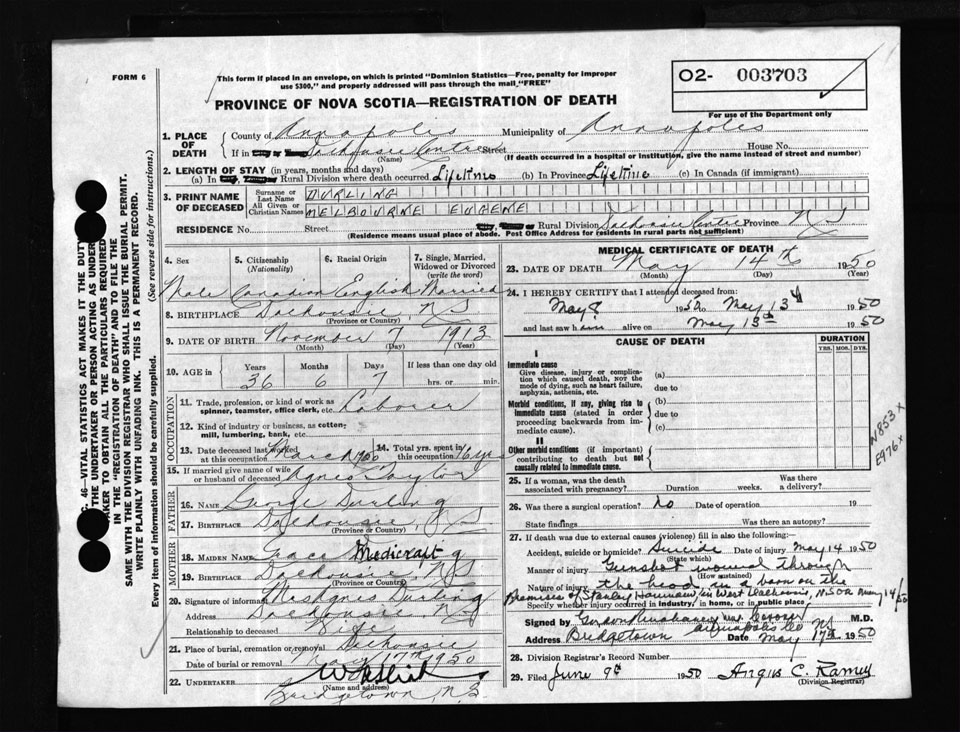 FORM 6
This form if placed in an envelope, on which is printed "Dominion Statistics—Free, penalty for improper
use $300," and properly addressed will pass through the mail "FREE"
O2- 003703
For use of the Department only
PROVINCE OF NOVA SCOTIA—REGISTRATION OF DEATH
1. PLACE OF DEATH
County of Annapolis Municipality of Annapolis
If in City or Town Dalhousie Centre Street House No.
(Name) (If death occurred in a hospital or institution, give the name instead of street and number)
2. LENGTH OF STAY (in years, months and days)
(a) In City, Town, Rural Division where death occurred Lifetime (b) In Province Lifetime (c) In Canada (if immigrant)
3. PRINT NAME OF DECEASED
Surname or Last Name DURLING
All Given or Christian Names MELBOURNE EUGENE
RESIDENCE No. Street Rural Division Dalhousie Centre Province NS
(Residence means usual place of abode. Post Office Address for residents in rural parts not sufficient)
4. Sex 5. Citizenship (Nationality) 6. Racial Origin 7. Single, Married, Widowed or Divorced (write the word)
Male Canadian English Married
8. BIRTHPLACE Dalhousie, NS
(Province or Country)
9. DATE OF BIRTH November 7 1913
(Month) (Day) (Year)
10. AGE in Years Months Days If less than one day old
36 6 7 hrs. or min.
OCCUPATION
11. Trade, profession or kind of work as
spinner, teamster, office clerk, etc. Laborer
12. Kind of industry or business, as cotton-
mill, lumbering, bank, etc.
13. Date deceased last worked at this occupation March
14. Total yrs. spent in this occupation 16 yrs
15. If married give name of wife
or husband of deceased Agnes Taylor
FATHER
16. NAME George Durling
17. BIRTHPLACE Dalhousie, NS
(Province or Country)
MOTHER
18. MAIDEN NAME Grace Medicraft
19. BIRTHPLACE Dalhousie, NS
(Province or Country)
20. Signature of informant Mrs Agnes Durling
Address Dalhousie NS
Relationship to deceased Wife
21. Place of burial, cremation or removal Dalhousie
Date of burial or removal May 17th 1950
22. UNDERTAKER
(Name and address)
Bridgetown, N.S
MEDICAL CERTIFICATE OF DEATH
23. DATE OF DEATH May 14th 1950
(Month) (Day) (Year)
24. I HEREBY CERTIFY that I attended deceased from
May 8 1950 to May 13th 1950
and last saw him alive on May 13th 1950
CAUSE OF DEATH DURATION
YRS. MOS. DYS.
I
Immediate cause
Give disease, injury or complication which caused death, NOT the mode of dying, such as heart failure, asphyxia, asthenia, etc.
(a)
due to
Morbid conditions, if any, giving rise to immediate cause (stated in order proceeding backwards from immediate cause).
(b)
due to
(c)
II
Other morbid conditions (if important) contributing to death but not causally related to immediate cause.
N853x
E976x
25. If a woman, was the death Was there
associated with pregnancy? Duration weeks. a delivery?
26. Was there a surgical operation? No Date of operation 19
State findings Was there an autopsy?
27. If death was due to external causes (violence) fill in also the following:—
Accident, suicide or homicide? Suicide Date of injury May 14 1950
(State which)
Manner of injury Gunshot wound through
(How sustained)
Nature of injury the head, in a barn on the
Premises of Stanley in West Dalhousie, N.S on May 14/50
Specify whether injury occurred in industry, in home, or in public place
Signed by Gordon M.D.
Address Bridgetown Annapolis Co NS Date May 17th 1950
28. Division Registrar's Record Number
29. Filed June 9th 1950 Angus C. Ramey
(Division Registrar)
C. 46—VITAL STATISTICS ACT MAKES IT THE DUTY
THE UNDERTAKER OR PERSON ACTING AS UNDER-
TAKER TO OBTAIN ALL THE PARTICULARS REQUIRED
IN THE "REGISTRATION OF DEATH" AND TO FILE THE
SAME WITH THE DIVISION REGISTRAR WHO SHALL ISSUE THE BURIAL PERMIT.
WRITE PLAINLY WITH UNFADING INK. THIS IS A PERMANENT RECORD.
Every item of information should be carefully supplied. (See reverse side for instructions.)